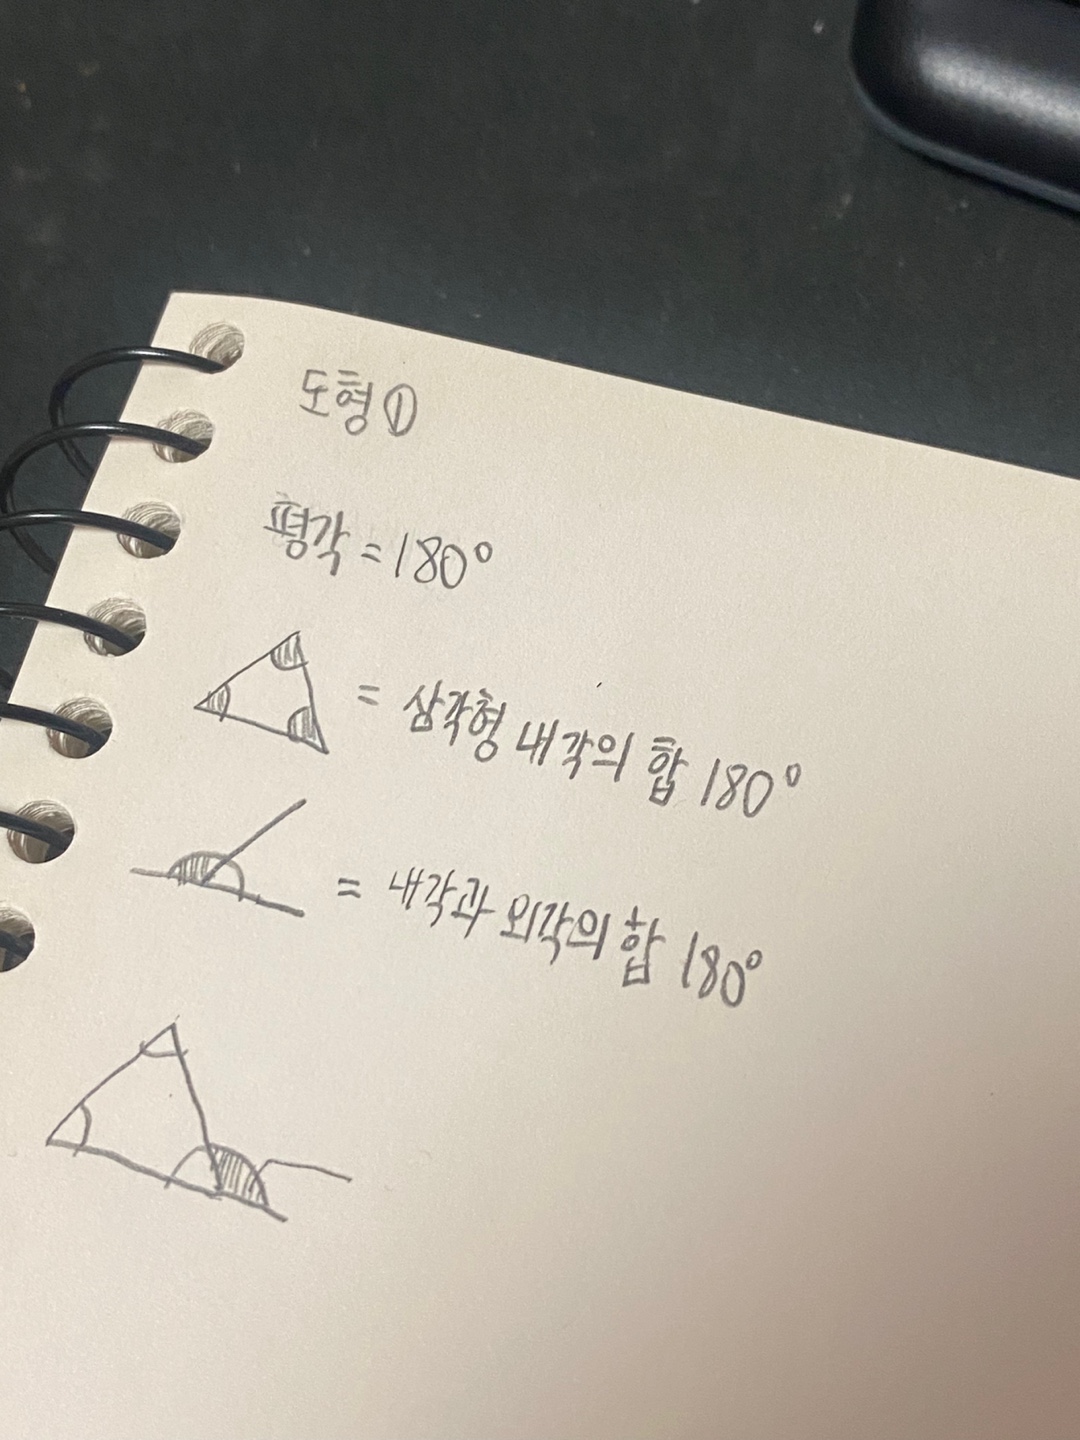 도형①
평각=180°
= 삼각형 내각의 합 180°
= 내각과 외각의 합 180°